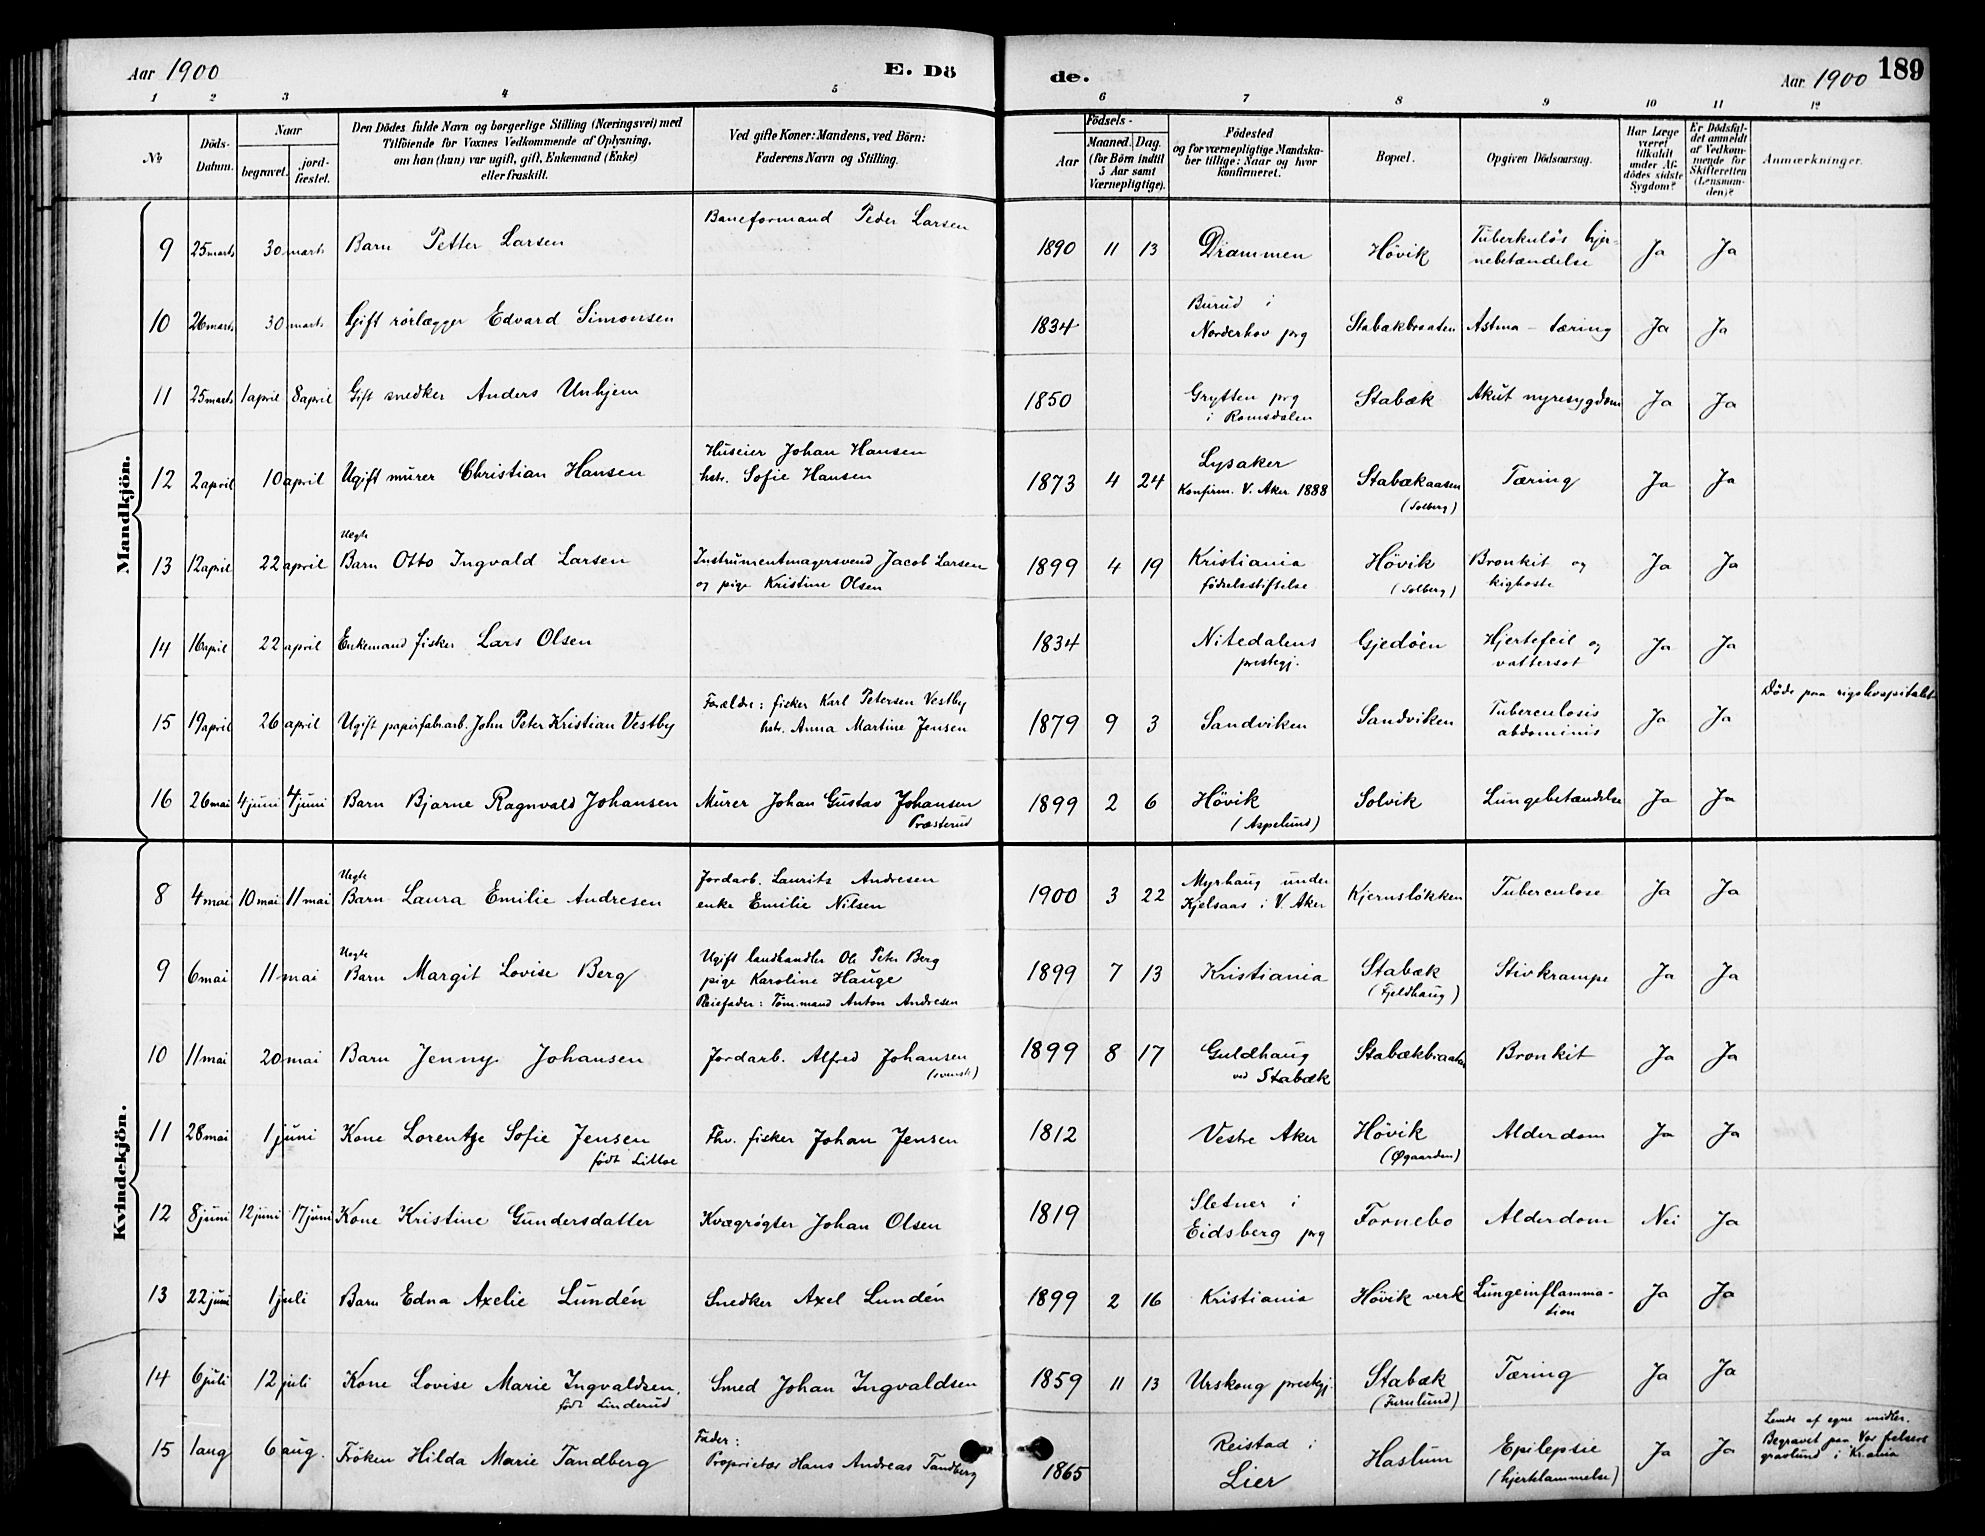 Aar 1900
E. Dö
de.
Aar 1900
189
1 2 3 4 5 6 7 8 9 10 11 12
No
Döds-Datum.
Naar
begravet.
jord-fæstet.
Den Dödes fulde Navn og borgerlige Stilling (Næringsvei) med
Tilföiende for Voxnes Vedkommende af Oplysning,
om han (hun) var ugift, gift, Enkemand (Enke)
eller fraskilt.
Ved gifte Koner: Mandens, ved Börn:
Faderens Navn og Stilling.
Födsels-
Aar
Maaned. Dag.
(for Börn indtil
5 Aar samt
Værnepligtige).
Födested
og for værnepligtige Mandska-
ber tillige: Naar og hvor
konfirmeret.
Bopæl.
Opgiven Dödsaarsag.
Har Læge
været
tilkaldt
under Af-
dödes sidste
Sygdom?
Er Dödsfal-
det anmeldt
af Vedkom-
mende for
Skifteretten
(Lensman-
den)?
Anmærkninger.
Mandkjön.
9 25 marts 30 marts Barn Petter Larsen
Baneformand Peder Larsen
1890 11 13 Drammen Høvik
Tuberkuløs hjer-
nebetændelse
Ja Ja
10 26 marts 30 marts Gift rörlægger Edvard Simonsen
1834
Burud i
Norderhov prg
Stabækbraaten Astma - tæring Ja Ja
11 25 marts 1 april 8 april Gift snedker Anders Unhjem
1850
Grytten prg
i Romsdalen
Stabæk Akut nyresygdom Ja Ja
12 2 april 10 april Ugift murer Christian Hansen
Huseier Johan Hansen
hstr. Sofie Hansen
1873 4 24
Lysaker
Konfirm. V. Aker 1888
Stabækaasen
(Solberg)
Tæring Ja Ja
13 12 april 22 april
Uegte
Barn Otto Ingvald Larsen
Instrumentmagersvend Jacob Larsen
og pige Kristine Olsen
1899 4 19
Kristiania
fødselsstiftelse
Høvik
(Solberg)
Bronkit og
kighoste
Ja Ja
14 16 april 22 april Enkemand fisker Lars Olsen
1834
Nitedalens
prestegj.
Gjedöen
Hjertefeil og
vattersot
Ja Ja
15 19 april 26 april Ugift papirfabarb. John Peter Kristian Vestby
Forældre: fisker Karl Petersen Vestby
hstr. Anna Martine Jensen
1879 9 3 Sandviken Sandviken
Tuberculosis
abdominis
Ja Ja
Döde paa rigshospitalet
16 26 mai 4 juni 4 juni Barn Bjarne Ragnvald Johansen
Murer Johan Gustav Johansen
Præsterud
1899 2 6
Høvik
(Aspelund)
Solvik Lungebetændelse Ja Ja
Kvindekjön.
8 4 mai 10 mai 11 mai
Uegte
Barn Laura Emilie Andresen
Jordarb. Laurits Andresen
enke Emilie Nilsen
1900 3 22
Myrhaug under
Kjelsaas i V. Aker
Kjernsløkken Tuberculose Ja Ja
9 6 mai 11 mai
Uegte
Barn Margit Lovise Berg
Ugift landhandler Ole Peter Berg
pige Karoline Hauge
Pleiefader: Töm.mand Anton Andresen
1899 7 13 Kristiania
Stabæk
(Fjeldhaug)
Stivkrampe Ja Ja
10 11 mai 20 mai Barn Jenny Johansen
Jordarb. Alfred Johansen
(svensk)
1899 8 17
Guldhaug
ved Stabæk
Stabækbraaten Bronkit Ja Ja
11 28 mai 1 juni Kone Lorentze Sofie Jensen
født Littoe
Fhv. fisker Johan Jensen
1812 Vestre Aker
Høvik
(Øgaarden)
Alderdom Ja Ja
12 8 juni 12 juni 17 juni Kone Kristine Gundersdatter
Kvægrøgter Johan Olsen
1819
Sletner i
Eidsberg prg
Fornebo Alderdom Nei Ja
13 22 juni 1 juli Barn Edna Axelie Lundén
Snedker Axel Lundén
1899 2 16 Kristiania Høvik verk
Lungeinflamma-
tion
Ja Ja
14 6 juli 12 juli Kone Lovise Marie Ingvaldsen.
født Linderud
Smed Johan Ingvaldsen
1859 11 13 Urskoug prestgj.
Stabæk
(Furulund)
Tæring Ja Ja
15 1 aug 6 aug. Fröken Hilda Marie Tandberg
Fader:
Proprietær Hans Andreas Tandberg
1865
Reistad i
Lier
Haslum
Epilepsie
(hjertelammelse)
Ja Ja
Levde af egne midler.
Begravet paa Vor frelsers
gravlund i Kr.ania